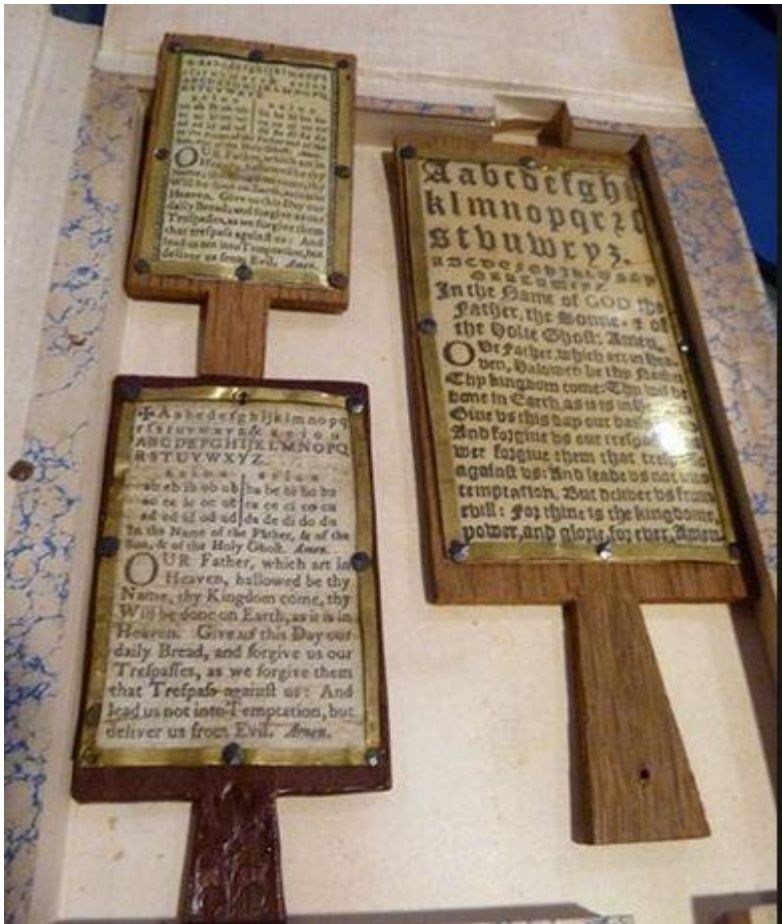 Aabcdefghijklmnopq
rſstuvwxyz& aeiou
ABCDEFGHIJKLMNOPQ
RSTUVWXYZ
a e i o u a e i o u
ab eb ib ob ub ba be bi bo bu
ac ec ic oc uc ca ce ci co cu
ad ed id od ud da de di do du
In the Name of the Father and of the
of the Holy Ghoſt. Amen.
OUR Father, which art in
Heaven, hallowed be thy
Name, thy Kingdom come, thy
Will be done on Earth, as it is in
Heaven. Give us this Day our
daily Bread, and forgive us our
Treſpaſſes, as we forgive them
that treſpaſs againſt us: And
lead us not into Temptation, but
deliver us from Evil. Amen.
✠Aabcdefghijklmnopq
rſstuvwxyz& aeiou
ABCDEFGHIJKLMNOPQ
RSTUVWXYZ
a e i o u a e i o u
ab eb ib ob ub ba be bi bo bu
ac ec ic oc uc ca ce ci co cu
ad ed id od ud da de di do du
In the Name of the Father, & of the
Son, & of the Holy Ghoſt. Amen.
OUR Father, which art in
Heaven, hallowed be thy
Name, thy Kingdom come, thy
Will be done on Earth, as it is in
Heaven. Give us this Day our
daily Bread, and forgive us our
Treſpaſſes, as we forgive them
that Treſpaſs againſt us: And
lead us not into Temptation, but
deliver us from Evil. Amen.
Aabcdefgh
klmnopqrꝛſ
stvuwxyz.
In the Name of GOD the
Father, the Sonne, & of
the Holie Ghoſt: Amen.
OUr Father, which art in hea-
uen, Halowed be thy Name:
Thy kingdom come: Thy will be
done in Earth, as it is in
Giue vs this day our daily
And forgiue vs our
wee forgiue them that
againſt vs: And leade vs not into
temptation, But deliuer vs from
euill: For thine is the kingdome,
power, and glorie, for euer, Amen.